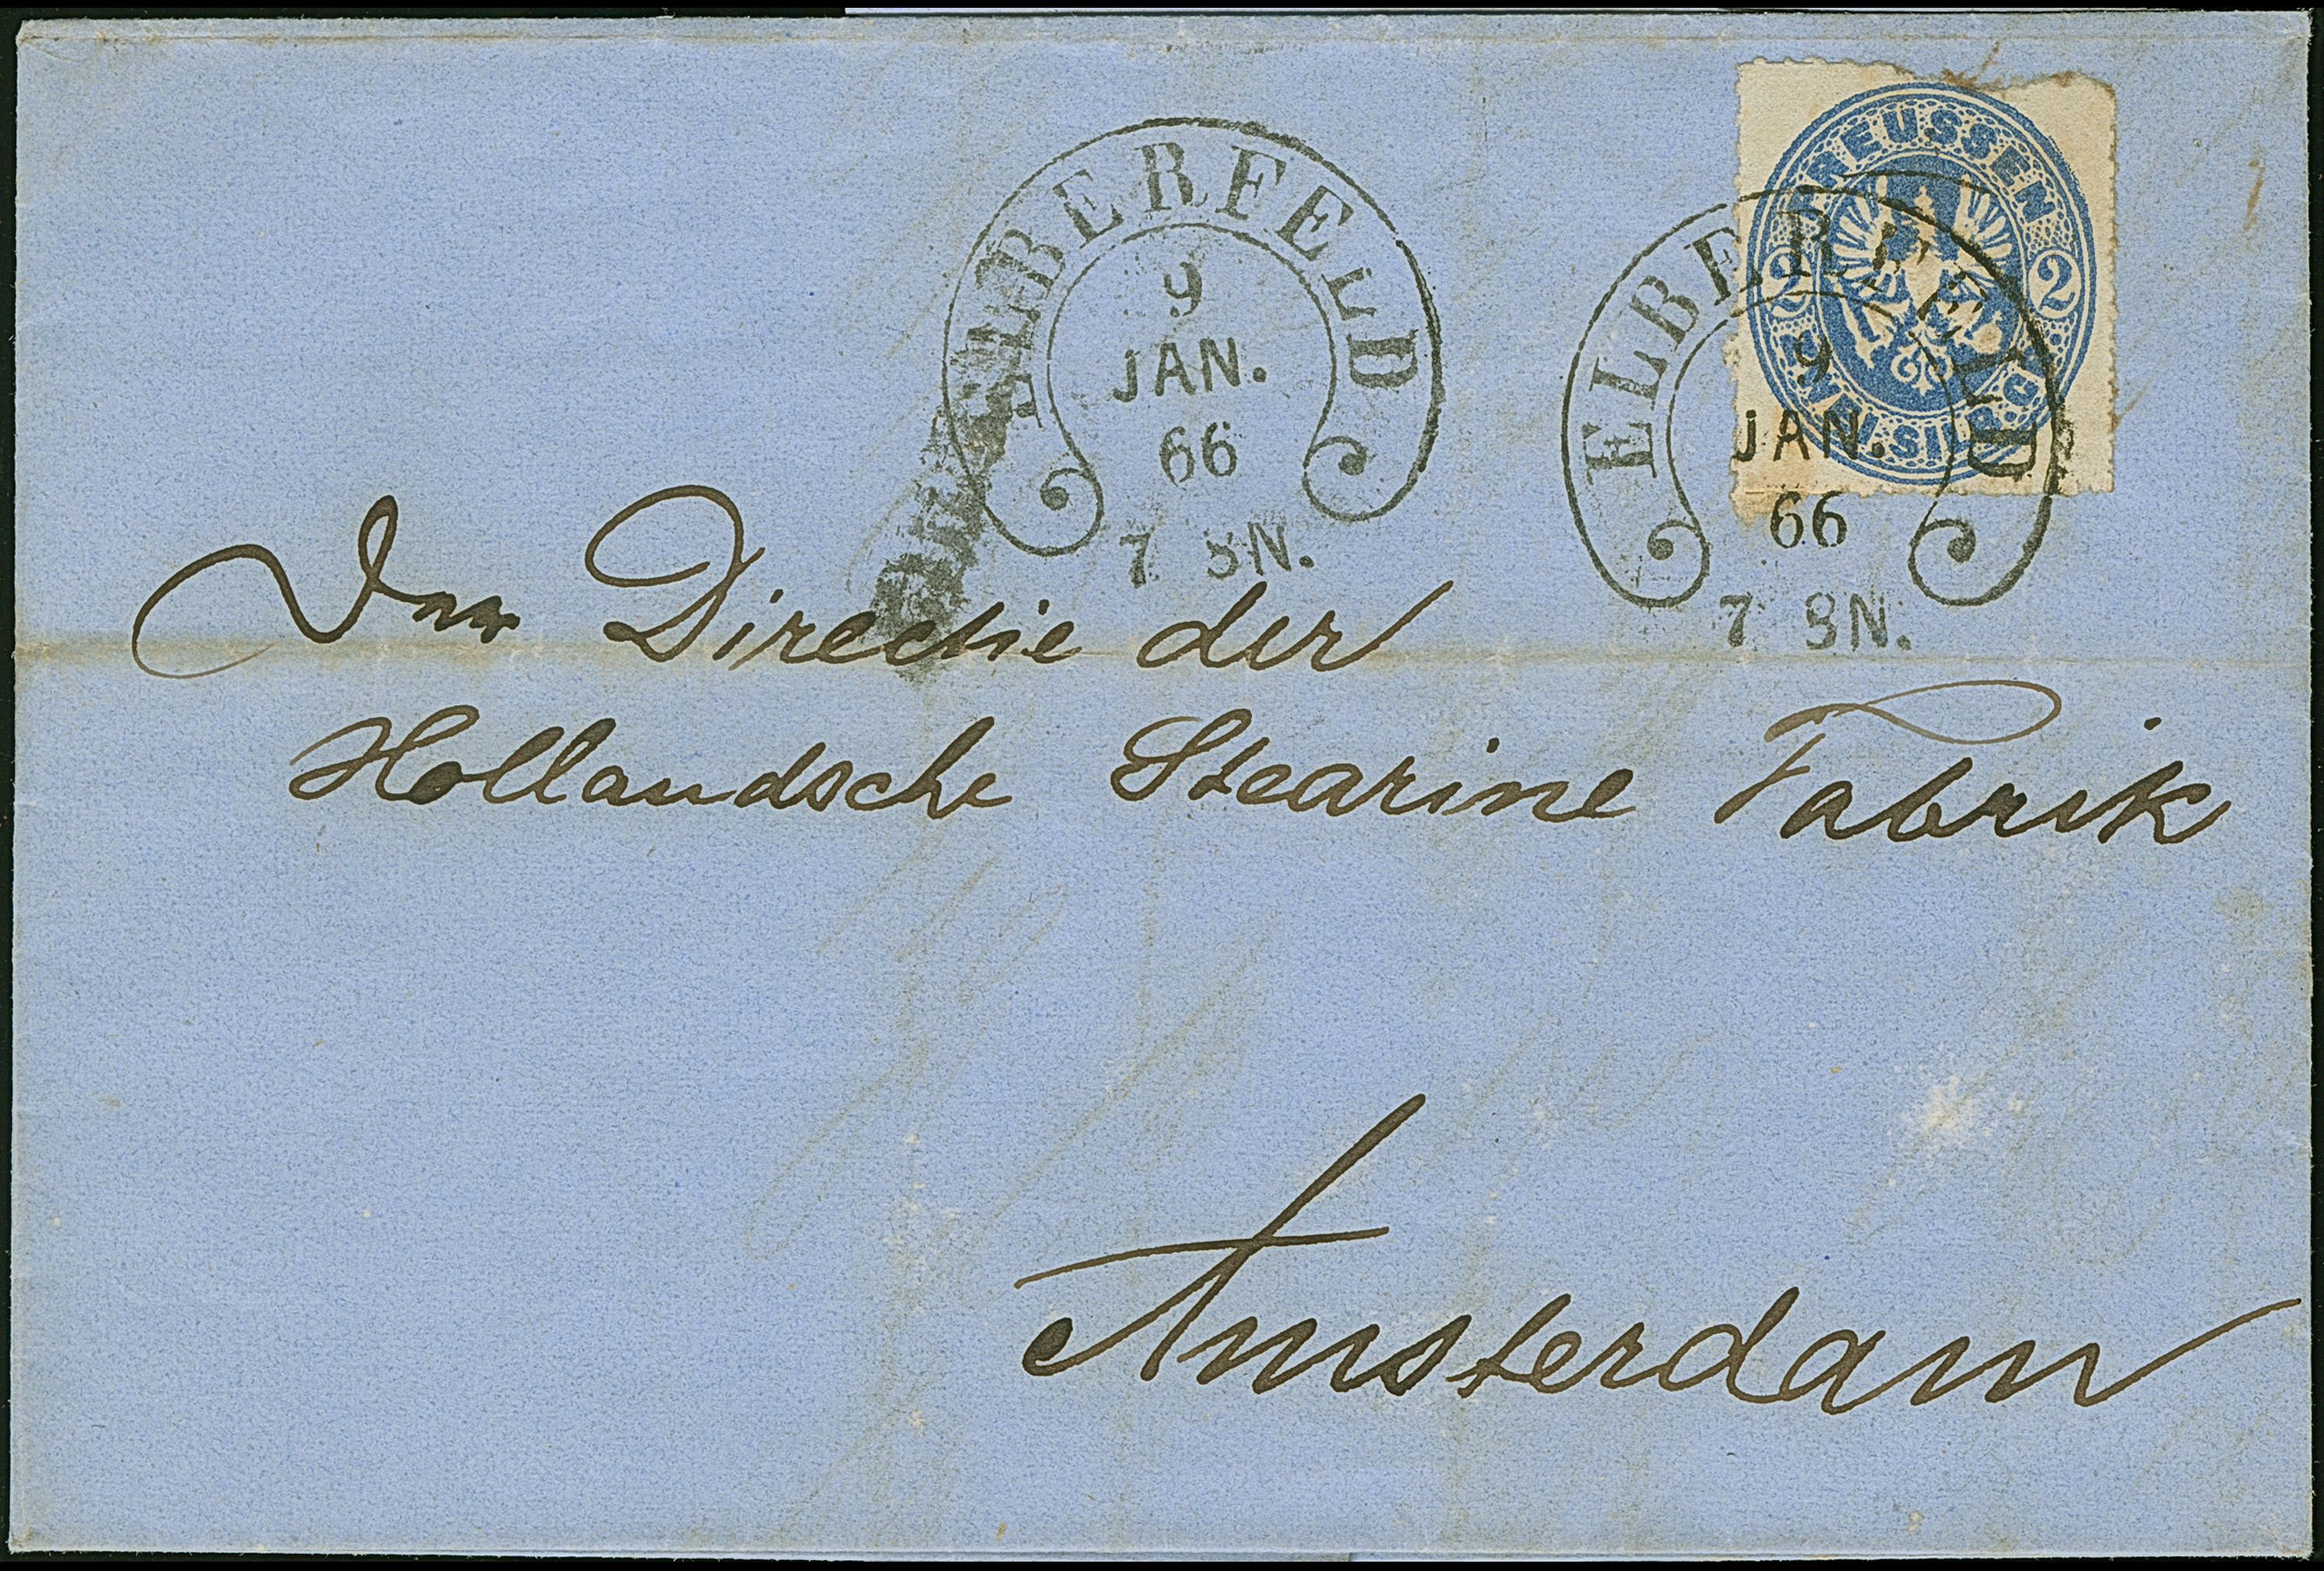 ELBERFELD
9
JAN.
66
7 8N.
PREUSSEN
2 2
ZWEI SILB.GR.
ELBERFELD
9
JAN.
66
7 8N.
Directie der
Hollandsche Stearine Fabrik
Amsterdam